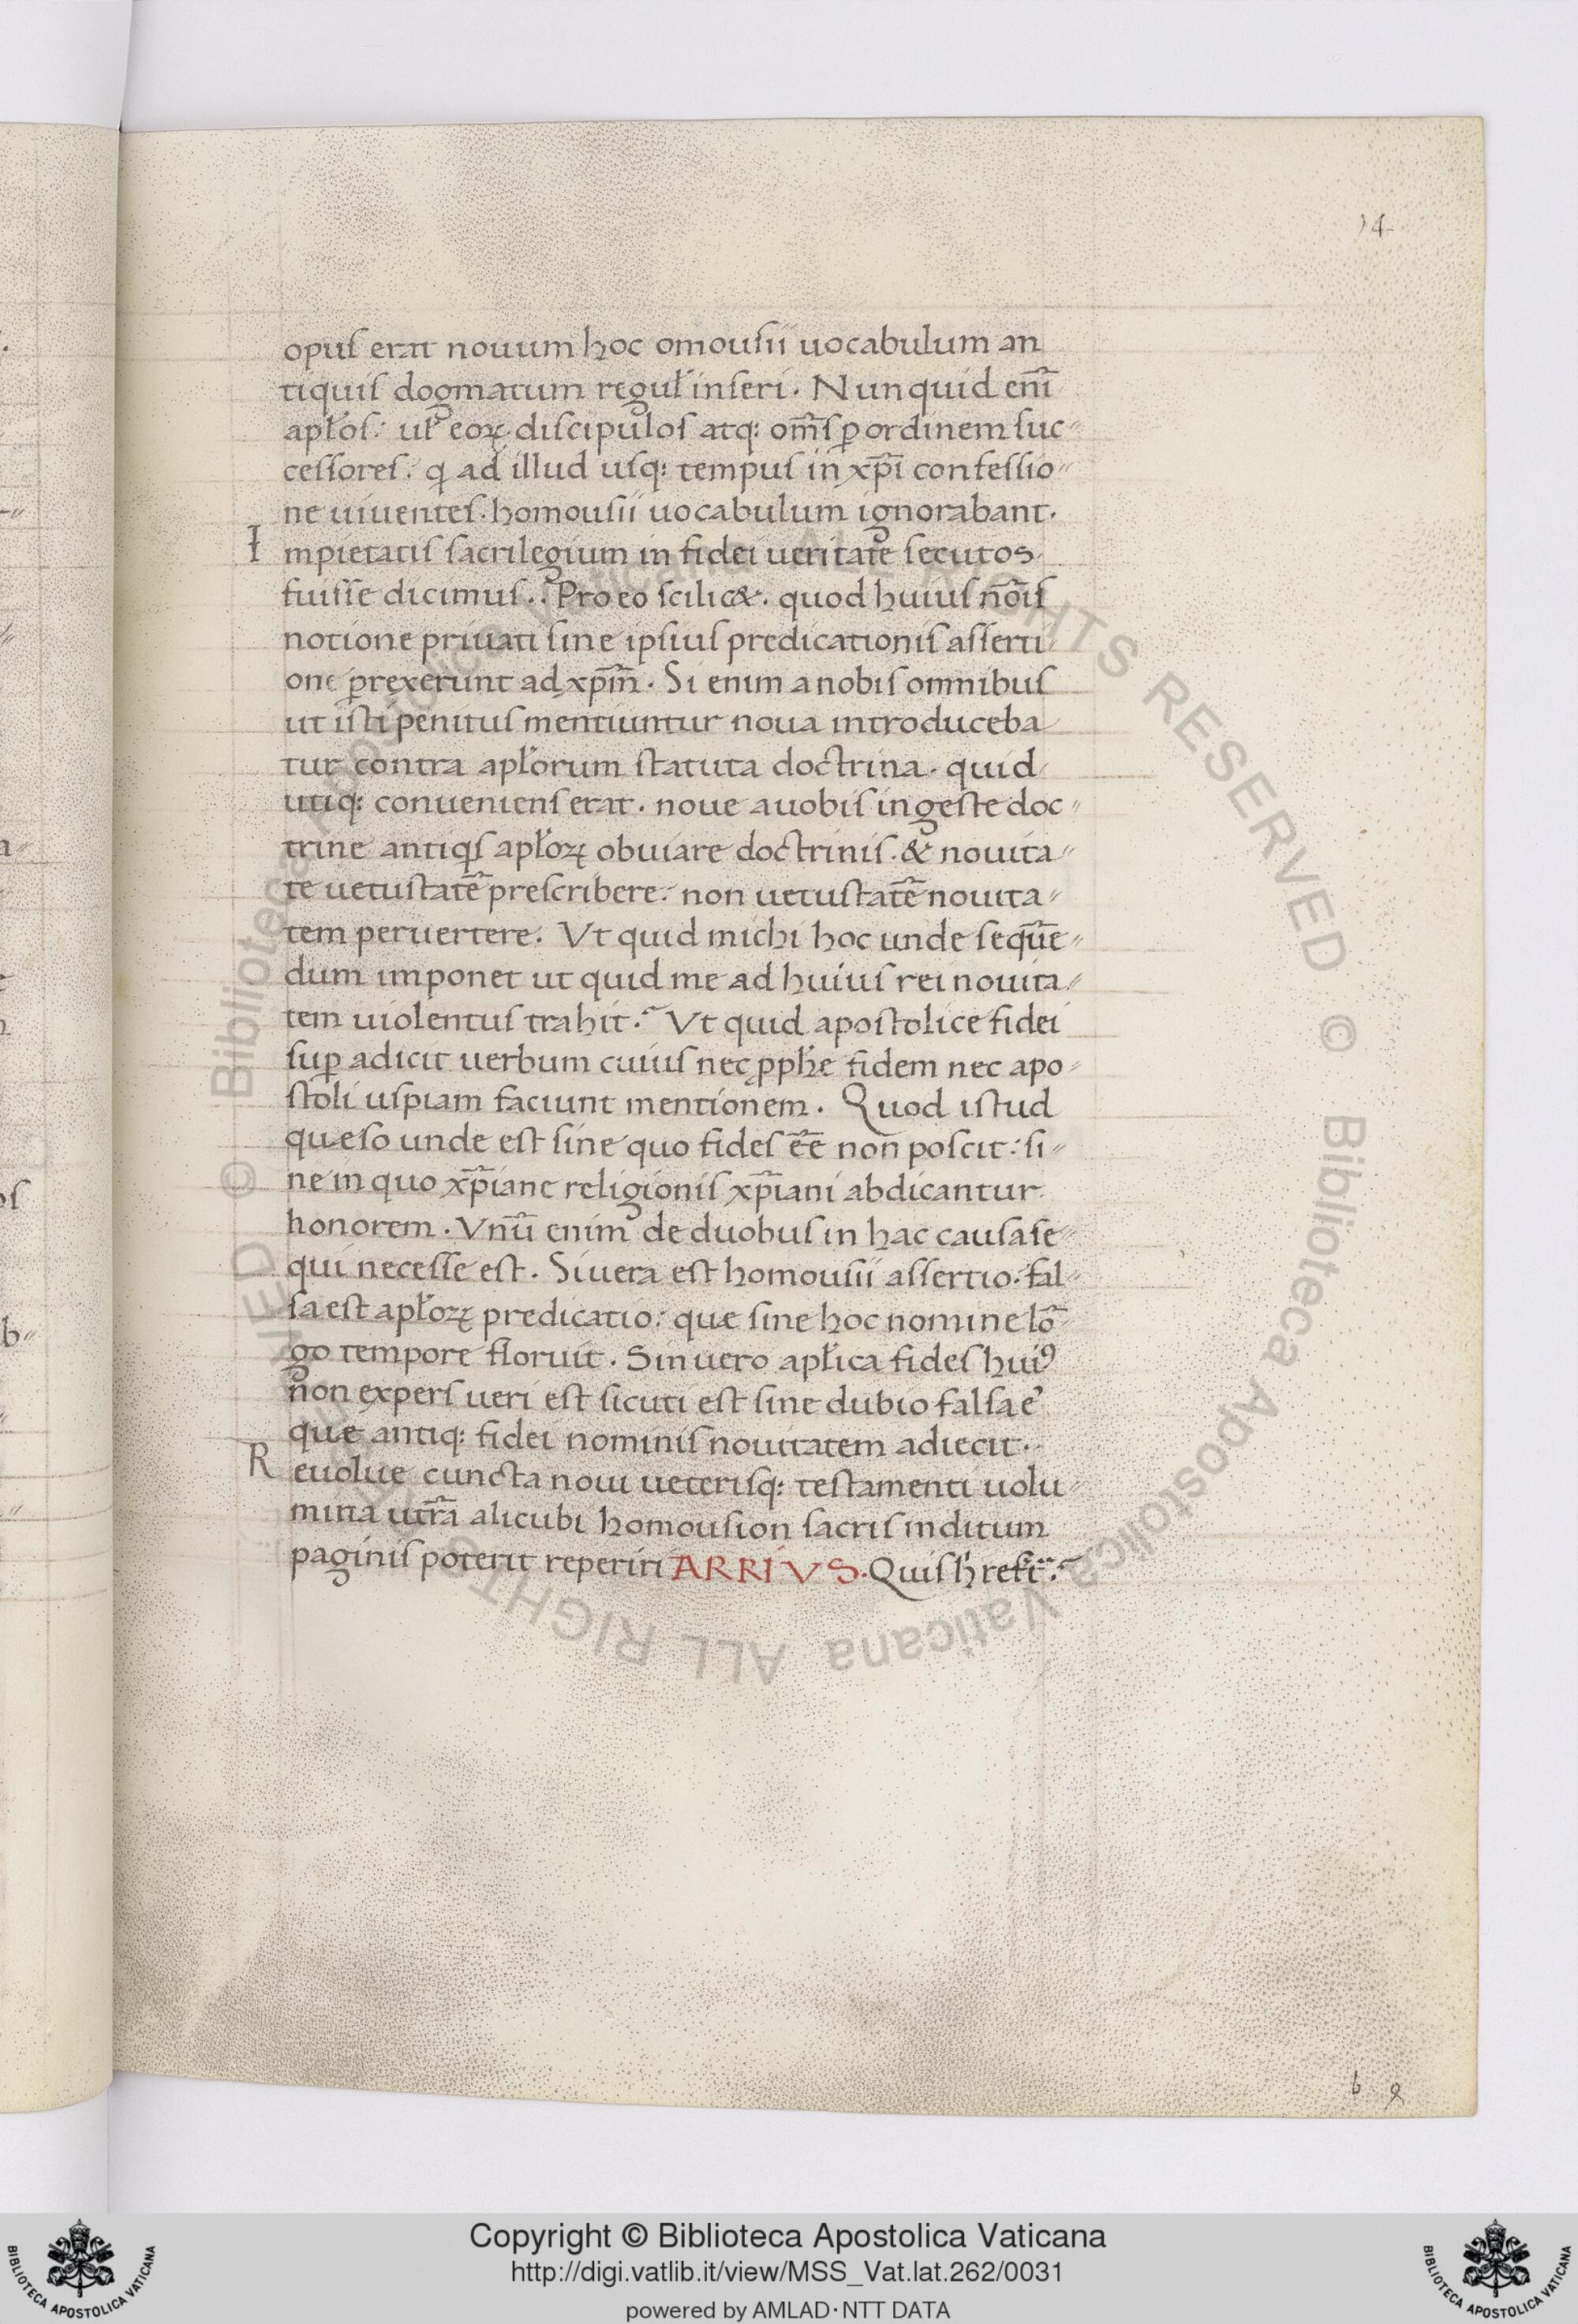 14
opus erat nouum hoc omousii uocabulum an
tiquis dogmatum regul̛ inseri. Nunquid enī
apl̛os: ul̛ eoꝝ discipulos atq: om̄s ꝑ ordinem suc〃
cessores. q̇ ad illud usq: tempus in xp̄i confessio〃
ne uiuentes. homousii uocabulum ignorabant.
Impietatis sacrilegium in fidei ueritate secutos
fuisse dicimus.. Pro eo scilic&. quod huius nōis
notione priuati sine ipsius predicationis asserti
one ꝑrexerunt ad xp̄m̄. Si enim a nobis omnibus
ut isti penitus mentiuntur noua introduceba
tur contra apl̛orum statuta doctrina. quid
utiq: conueniens erat. noue a uobis ingeste doc〃
trine antiqis apl̛oꝝ obuiare doctrinis. & nouita〃
te uetustatē prescribere: non uetustatē nouita〃
tem peruertere. Vt quid michi hoc unde seqūe〃
dum imponet ut quid me ad huius rei nouita〃
tem uiolentus trahit? Vt quid apostolice fidei
suꝑ adicit uerbum cuius nec ꝓph̛e fidem nec apo〃
stoli uspiam faciunt mentionem. Quod istud
queso unde est sine quo fides ēē non poscit: si〃
ne in quo xp̄iane religionis xp̄iani abdicantur
honorem. Vnū enim de duobus in hac causa se〃
qui necesse est. Si uera est homousii assertio. fal〃
sa est apl̛oꝝ predicatio: que sine hoc nomine lō
go tempore floruit. Sin uero apl̛ica fides huiꝰ
non expers ueri est sicuti est sine dubio falsa e̛
que antiq: fidei nominis nouitatem adiecit.
Reuolue cuncta noui ueterisq: testamenti uolu〃
mina utr̄a alicubi homousion sacris inditum
paginis poterit reperiri ARRIVS. Quis h̛ refit?
b
Copyright © Biblioteca Apostolica Vaticana
http://digi.vatlib.it/view/MSS_Vat.lat.262/0031
powered by AMLAD·NTT DATA
BIBLIOTECA APOSTOLICA VATICANA
BIBLIOTECA APOSTOLICA VATICANA
© Biblioteca Apostolica Vaticana ALL RIGHTS RESERVED © Biblioteca Apostolica Vaticana ALL RIGHTS RESERVED